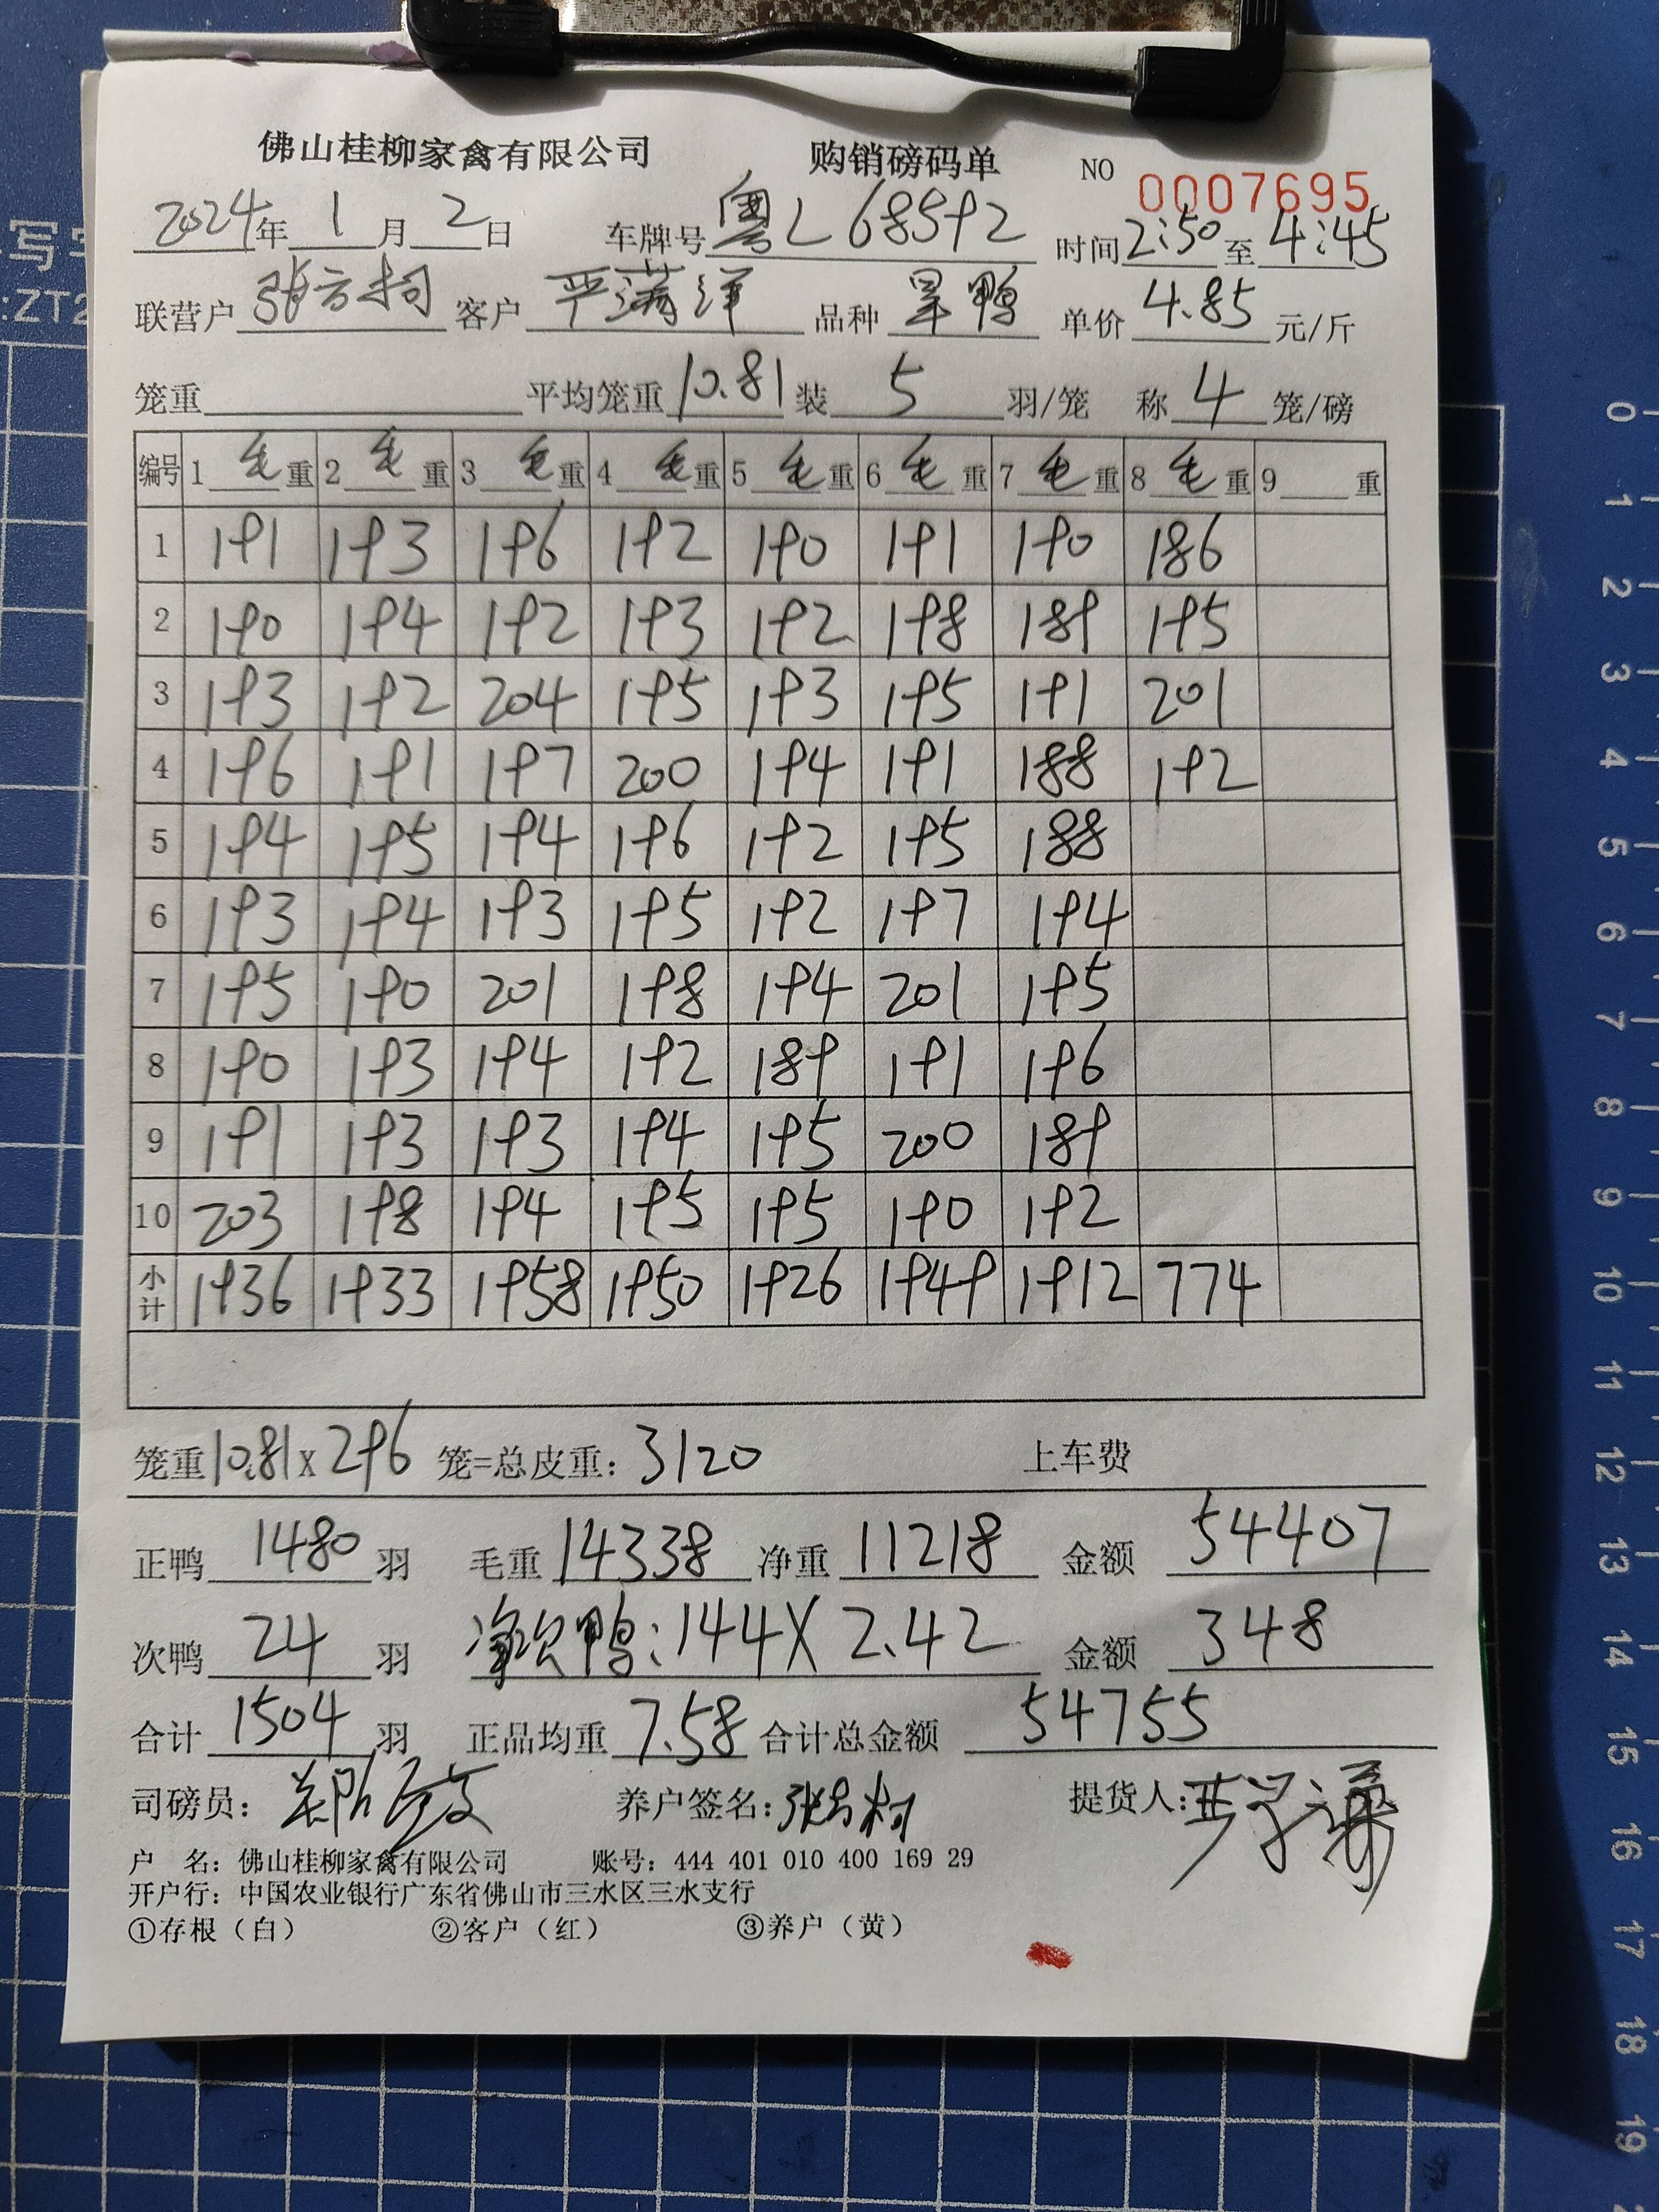 佛山桂柳家禽有限公司 购销磅码单 NO 0007695
2024年 1月 2日 车牌号 粤L68592 时间 2:50 至 4:45
联营户 张方柯 客户 严满洋 品种 旱鸭 单价 4.85 元/斤
笼重 平均笼重 10.81 装 5 羽/笼 称 4 笼/磅
编号 1 毛重 2 毛重 3 毛重 4 毛重 5 毛重 6 毛重 7 毛重 8 毛重 9 重
1 191 193 196 192 190 191 190 186
2 190 194 192 193 192 198 189 195
3 193 192 204 195 193 195 191 201
4 196 191 197 200 194 191 188 192
5 194 195 194 196 192 195 188
6 193 194 193 195 192 197 194
7 195 190 201 198 194 201 195
8 190 193 194 192 189 191 196
9 191 193 193 194 195 200 189
10 203 198 194 195 195 190 192
小计 1936 1933 1958 1950 1926 1949 1912 774
笼重 10.81 x 296 笼=总皮重: 3120 上车费
正鸭 1480 羽 毛重 14338 净重 11218 金额 54407
次鸭 24 羽 次鸭:144X2.42 金额 348
合计 1504 羽 正品均重 7.58 合计总金额 54755
司磅员: 养户签名: 张方柯 提货人:
户 名: 佛山桂柳家禽有限公司 账号: 444 401 010 400 169 29
开户行: 中国农业银行广东省佛山市三水区三水支行
①存根（白） ②客户（红） ③养户（黄）
0
1
2
3
4
5
6
7
8
9
10
11
12
13
14
15
16
17
18
19